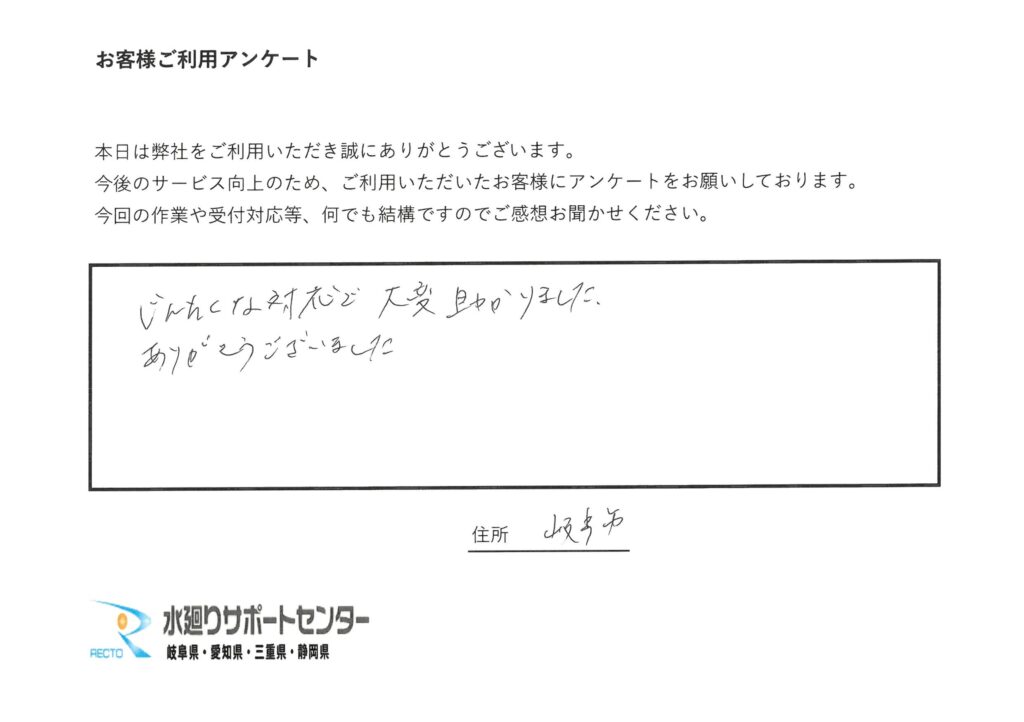 お客様ご利用アンケート
本日は弊社をご利用いただき誠にありがとうございます。
今後のサービス向上のため、ご利用いただいたお客様にアンケートをお願いしております。
今回の作業や受付対応等、何でも結構ですのでご感想お聞かせください。
じんそくな対応で 大変 助かりました。
ありがとうございました
住所 岐阜市
RECTO
水廻りサポートセンター
岐阜県・愛知県・三重県・静岡県